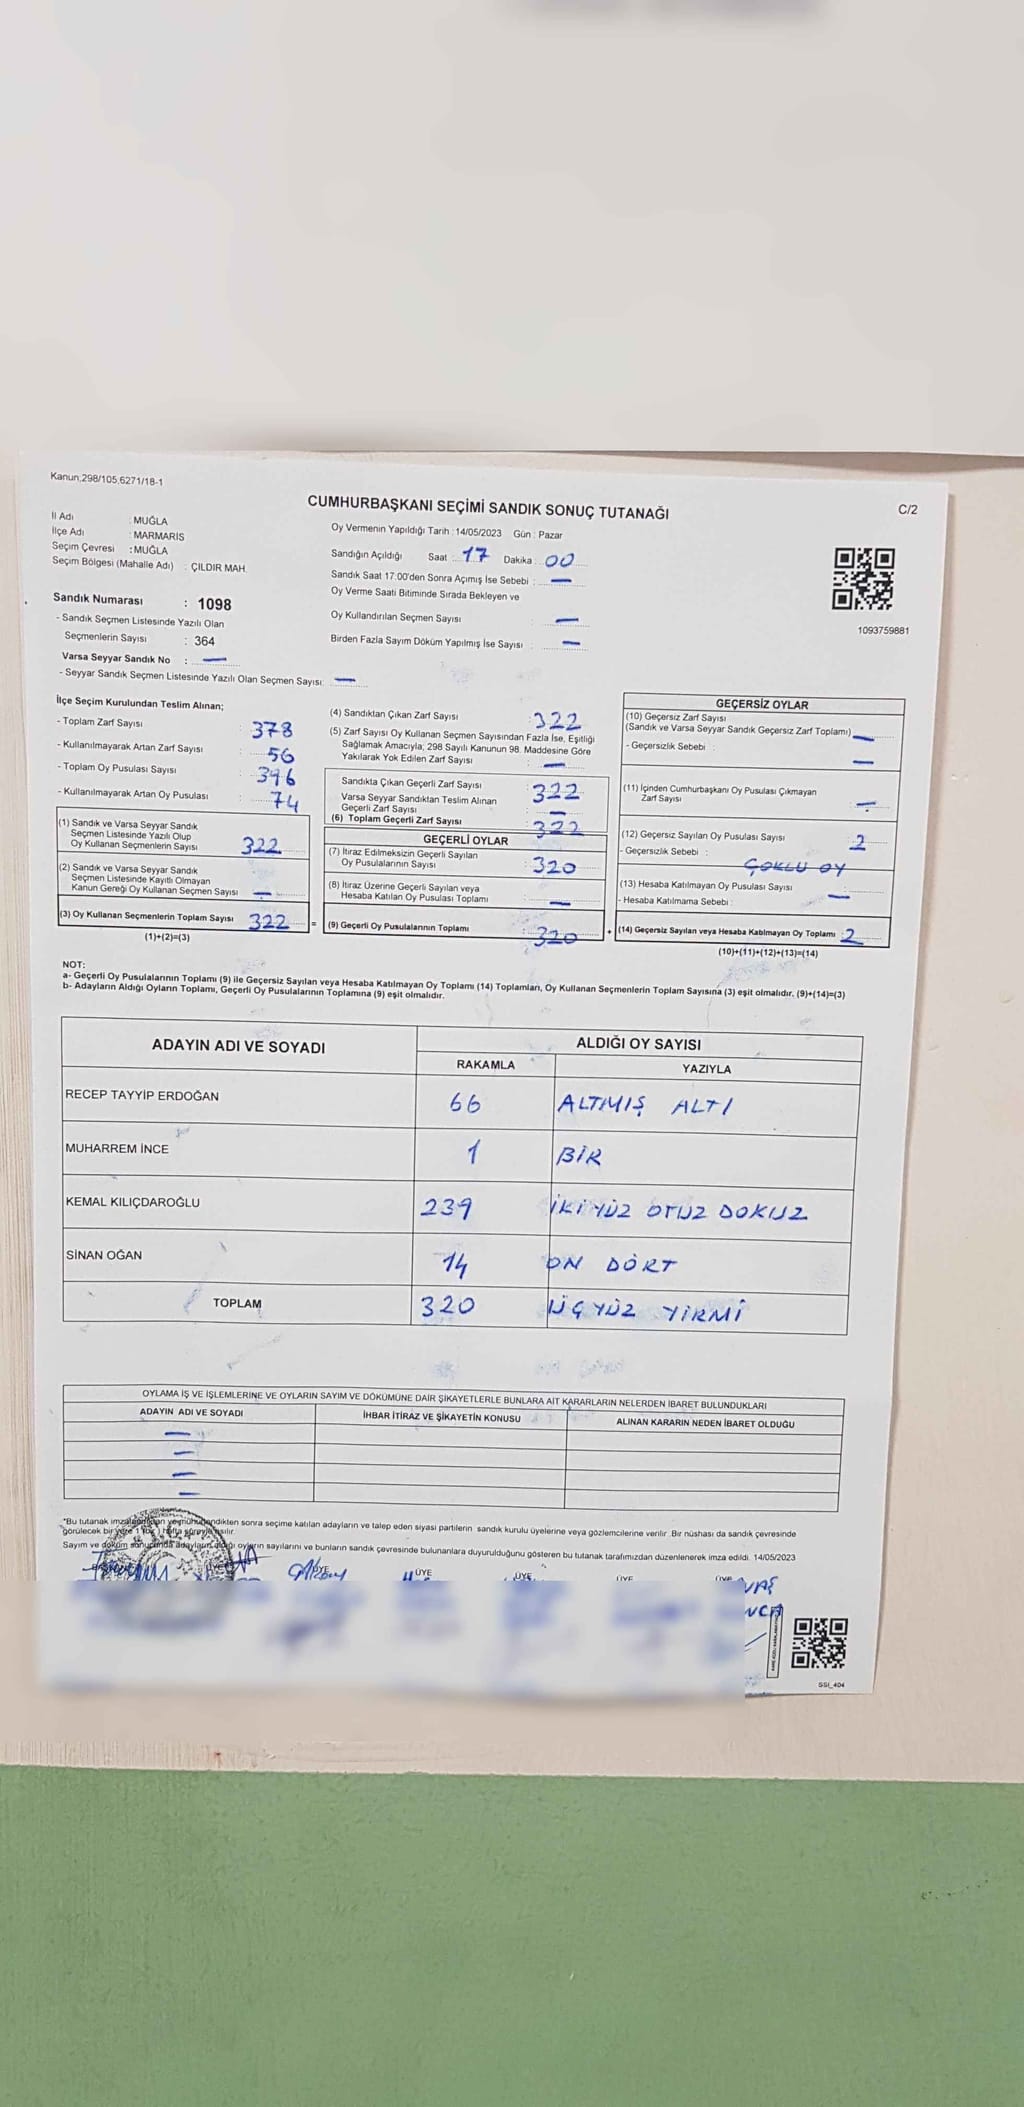 Kanun;298/105,6271/18-1
CUMHURBAŞKANI SEÇİMİ SANDIK SONUÇ TUTANAĞI
C/2
İl Adı : MUĞLA
İlçe Adı : MARMARİS
Seçim Çevresi : MUĞLA
Seçim Bölgesi (Mahalle Adı) : ÇILDIR MAH.
Oy Vermenin Yapıldığı Tarih :14/05/2023 Gün : Pazar
Sandığın Açıldığı Saat : 17 Dakika : 00
Sandık Saat 17:00'den Sonra Açımış İse Sebebi : —
Oy Verme Saati Bitiminde Sırada Bekleyen ve
Oy Kullandırılan Seçmen Sayısı : —
Birden Fazla Sayım Döküm Yapılmış İse Sayısı : —
1093759881
Sandık Numarası : 1098
- Sandık Seçmen Listesinde Yazılı Olan
Seçmenlerin Sayısı : 364
Varsa Seyyar Sandık No : —
- Seyyar Sandık Seçmen Listesinde Yazılı Olan Seçmen Sayısı: —
İlçe Seçim Kurulundan Teslim Alınan;
- Toplam Zarf Sayısı : 378
- Kullanılmayarak Artan Zarf Sayısı : 56
- Toplam Oy Pusulası Sayısı : 396
- Kullanılmayarak Artan Oy Pusulası : 74
(1) Sandık ve Varsa Seyyar Sandık
Seçmen Listesinde Yazılı Olup
Oy Kullanan Seçmenlerin Sayısı : 322
(2) Sandık ve Varsa Seyyar Sandık
Seçmen Listesinde Kayıtlı Olmayan
Kanun Gereği Oy Kullanan Seçmen Sayısı : —
(3) Oy Kullanan Seçmenlerin Toplam Sayısı : 322 =
(1)+(2)=(3)
(4) Sandıktan Çıkan Zarf Sayısı : 322
(5) Zarf Sayısı Oy Kullanan Seçmen Sayısından Fazla İse, Eşitliği
Sağlamak Amacıyla; 298 Sayılı Kanunun 98. Maddesine Göre
Yakılarak Yok Edilen Zarf Sayısı : —
Sandıkta Çıkan Geçerli Zarf Sayısı : 322
Varsa Seyyar Sandıktan Teslim Alınan
Geçerli Zarf Sayısı : —
(6) Toplam Geçerli Zarf Sayısı : 322
GEÇERLİ OYLAR
(7) İtiraz Edilmeksizin Geçerli Sayılan
Oy Pusulalarının Sayısı : 320
(8) İtiraz Üzerine Geçerli Sayılan veya
Hesaba Katılan Oy Pusulası Toplamı : —
(9) Geçerli Oy Pusulalarının Toplamı : 320 +
GEÇERSİZ OYLAR
(10) Geçersiz Zarf Sayısı
(Sandık ve Varsa Seyyar Sandık Geçersiz Zarf Toplamı) —
- Geçersizlik Sebebi : —
(11) İçinden Cumhurbaşkanı Oy Pusulası Çıkmayan
Zarf Sayısı : —
(12) Geçersiz Sayılan Oy Pusulası Sayısı : 2
- Geçersizlik Sebebi : ÇOKLU OY
(13) Hesaba Katılmayan Oy Pusulası Sayısı : —
- Hesaba Katılmama Sebebi :
(14) Geçersiz Sayılan veya Hesaba Katılmayan Oy Toplamı : 2
(10)+(11)+(12)+(13)=(14)
NOT:
a- Geçerli Oy Pusulalarının Toplamı (9) ile Geçersiz Sayılan veya Hesaba Katılmayan Oy Toplamı (14) Toplamları, Oy Kullanan Seçmenlerin Toplam Sayısına (3) eşit olmalıdır. (9)+(14)=(3)
b- Adayların Aldığı Oyların Toplamı, Geçerli Oy Pusulalarının Toplamına (9) eşit olmalıdır.
ADAYIN ADI VE SOYADI ALDIĞI OY SAYISI
RAKAMLA YAZIYLA
RECEP TAYYİP ERDOĞAN 66 ALTMIŞ ALTI
MUHARREM İNCE 1 BİR
KEMAL KILIÇDAROĞLU 239 İKİ YÜZ OTUZ DOKUZ
SİNAN OĞAN 14 ON DÖRT
TOPLAM 320 ÜÇ YÜZ YİRMİ
OYLAMA İŞ VE İŞLEMLERİNE VE OYLARIN SAYIM VE DÖKÜMÜNE DAİR ŞİKAYETLERLE BUNLARA AİT KARARLARIN NELERDEN İBARET BULUNDUKLARI
ADAYIN ADI VE SOYADI İHBAR İTİRAZ VE ŞİKAYETİN KONUSU ALINAN KARARIN NEDEN İBARET OLDUĞU
—
—
—
—
*Bu tutanak imzalandıktan ve mühürlendikten sonra seçime katılan adayların ve talep eden siyasi partilerin sandık kurulu üyelerine veya gözlemcilerine verilir. Bir nüshası da sandık çevresinde
görülecek bir yere 1 (bir) hafta süreyle asılır.
Sayım ve döküm sonucunda adayların aldığı oyların sayılarını ve bunların sandık çevresinde bulunanlara duyurulduğunu gösteren bu tutanak tarafımızdan düzenlenerek imza edildi. 14/05/2023
ÜYE ÜYE ÜYE ÜYE ÜYE
SSI_404